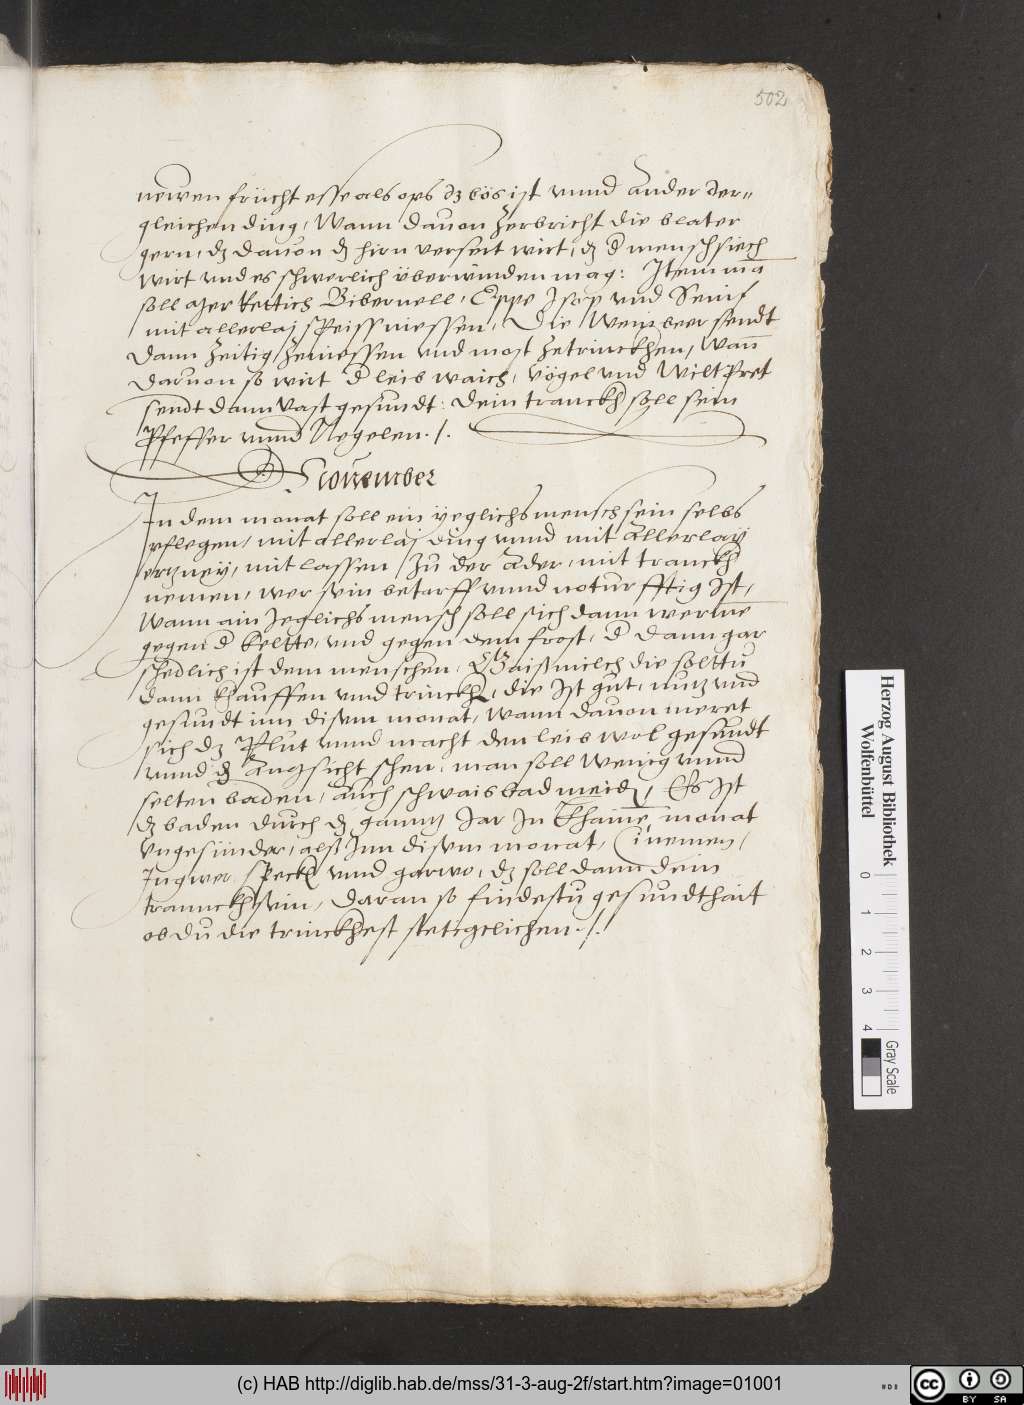 502
newen frücht esse als ops dz bös ist vnnd ander der-
gleichen ding, Wann dauon zerbricht die blater
gern, dz dauon dz hirn verseit wirt, dz d mensch siech
wirt vnd es schwerlich überwinden mag: Item mā
soll aber Rettich Bibernell, Eppe Isop vnd Senif
mit allerlaj speiss niessen, Die Weinbeer sendt
dann zeitig zeniessen vnd most zetrinckhen, wan̄
daruon so wirt d leib waich, vögel vnd Wiltpret
sendt dann vast gesundt: dein tranckh soll sein
Pfeffer vnnd Negelen ./.
Nouember
In dem monat soll ein yeglichs mensch sein selbs
pflegen, mit allerlaj ding vnnd mit Allerlaÿ
ertzneÿ, mit lassen zu der Ader, mit tranckh
nemen, wer sein betarff vnnd noturfftig Ist,
Wann ain Jeglichs mensch soll sich dann werme
gegen d keltte, vnd gegen dem frost, d dann gar
schedlich ist dem menschen, Gaißmilch die solttu
dann khauffen vnnd trinckh, die Ist gut, nutz vnd
gesundt inn disem monat, wann dauon meret
sich dz Plut vnnd macht den leib wol gesundt
vnnd dz Angsicht schen, man soll wenig vnnd
selten baden, auch schwaisbad meidn, Es Ist
dz baden durch dz ganntz Jar In khaine monat
vngesünder, alß Inn disem monat, Cinemen,
Ingwer, speckh vnnd garwe, dz soll dann dein
tranncкh sein, daran so findestu gesundthait
ob du die trinckhest stetigclichen ./.
Herzog August Bibliothek
Wolfenbüttel
0 1 2 3 4
Gray Scale
(c) HAB http://diglib.hab.de/mss/31-3-aug-2f/start.htm?image=01001
cc BY SA